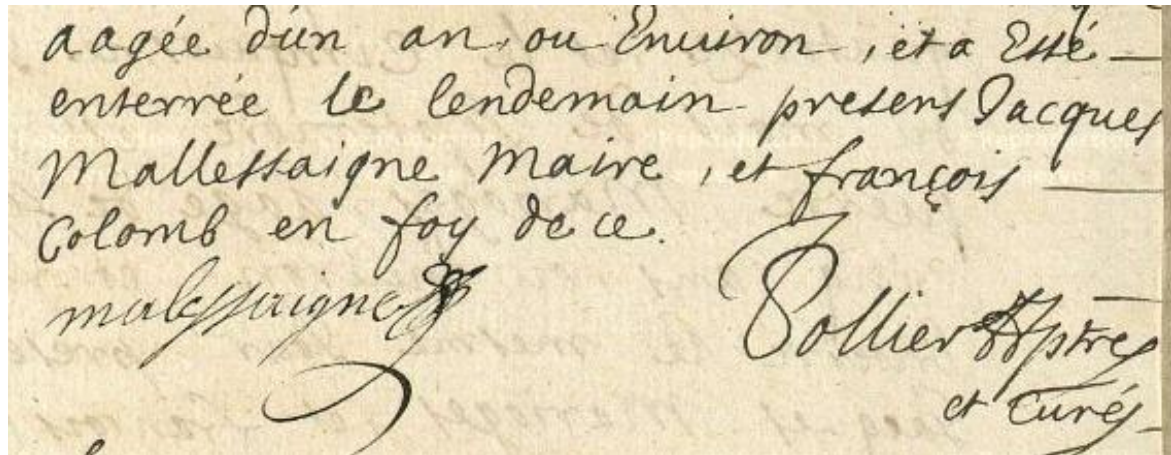 aagée d'un an, ou Enuiron, et a Esté
enterrée le lendemain presens Jacques
Mallessaigne Maire, et françois
Colomb en foy de ce.
malessaigne
Sollier ptre
et Curé